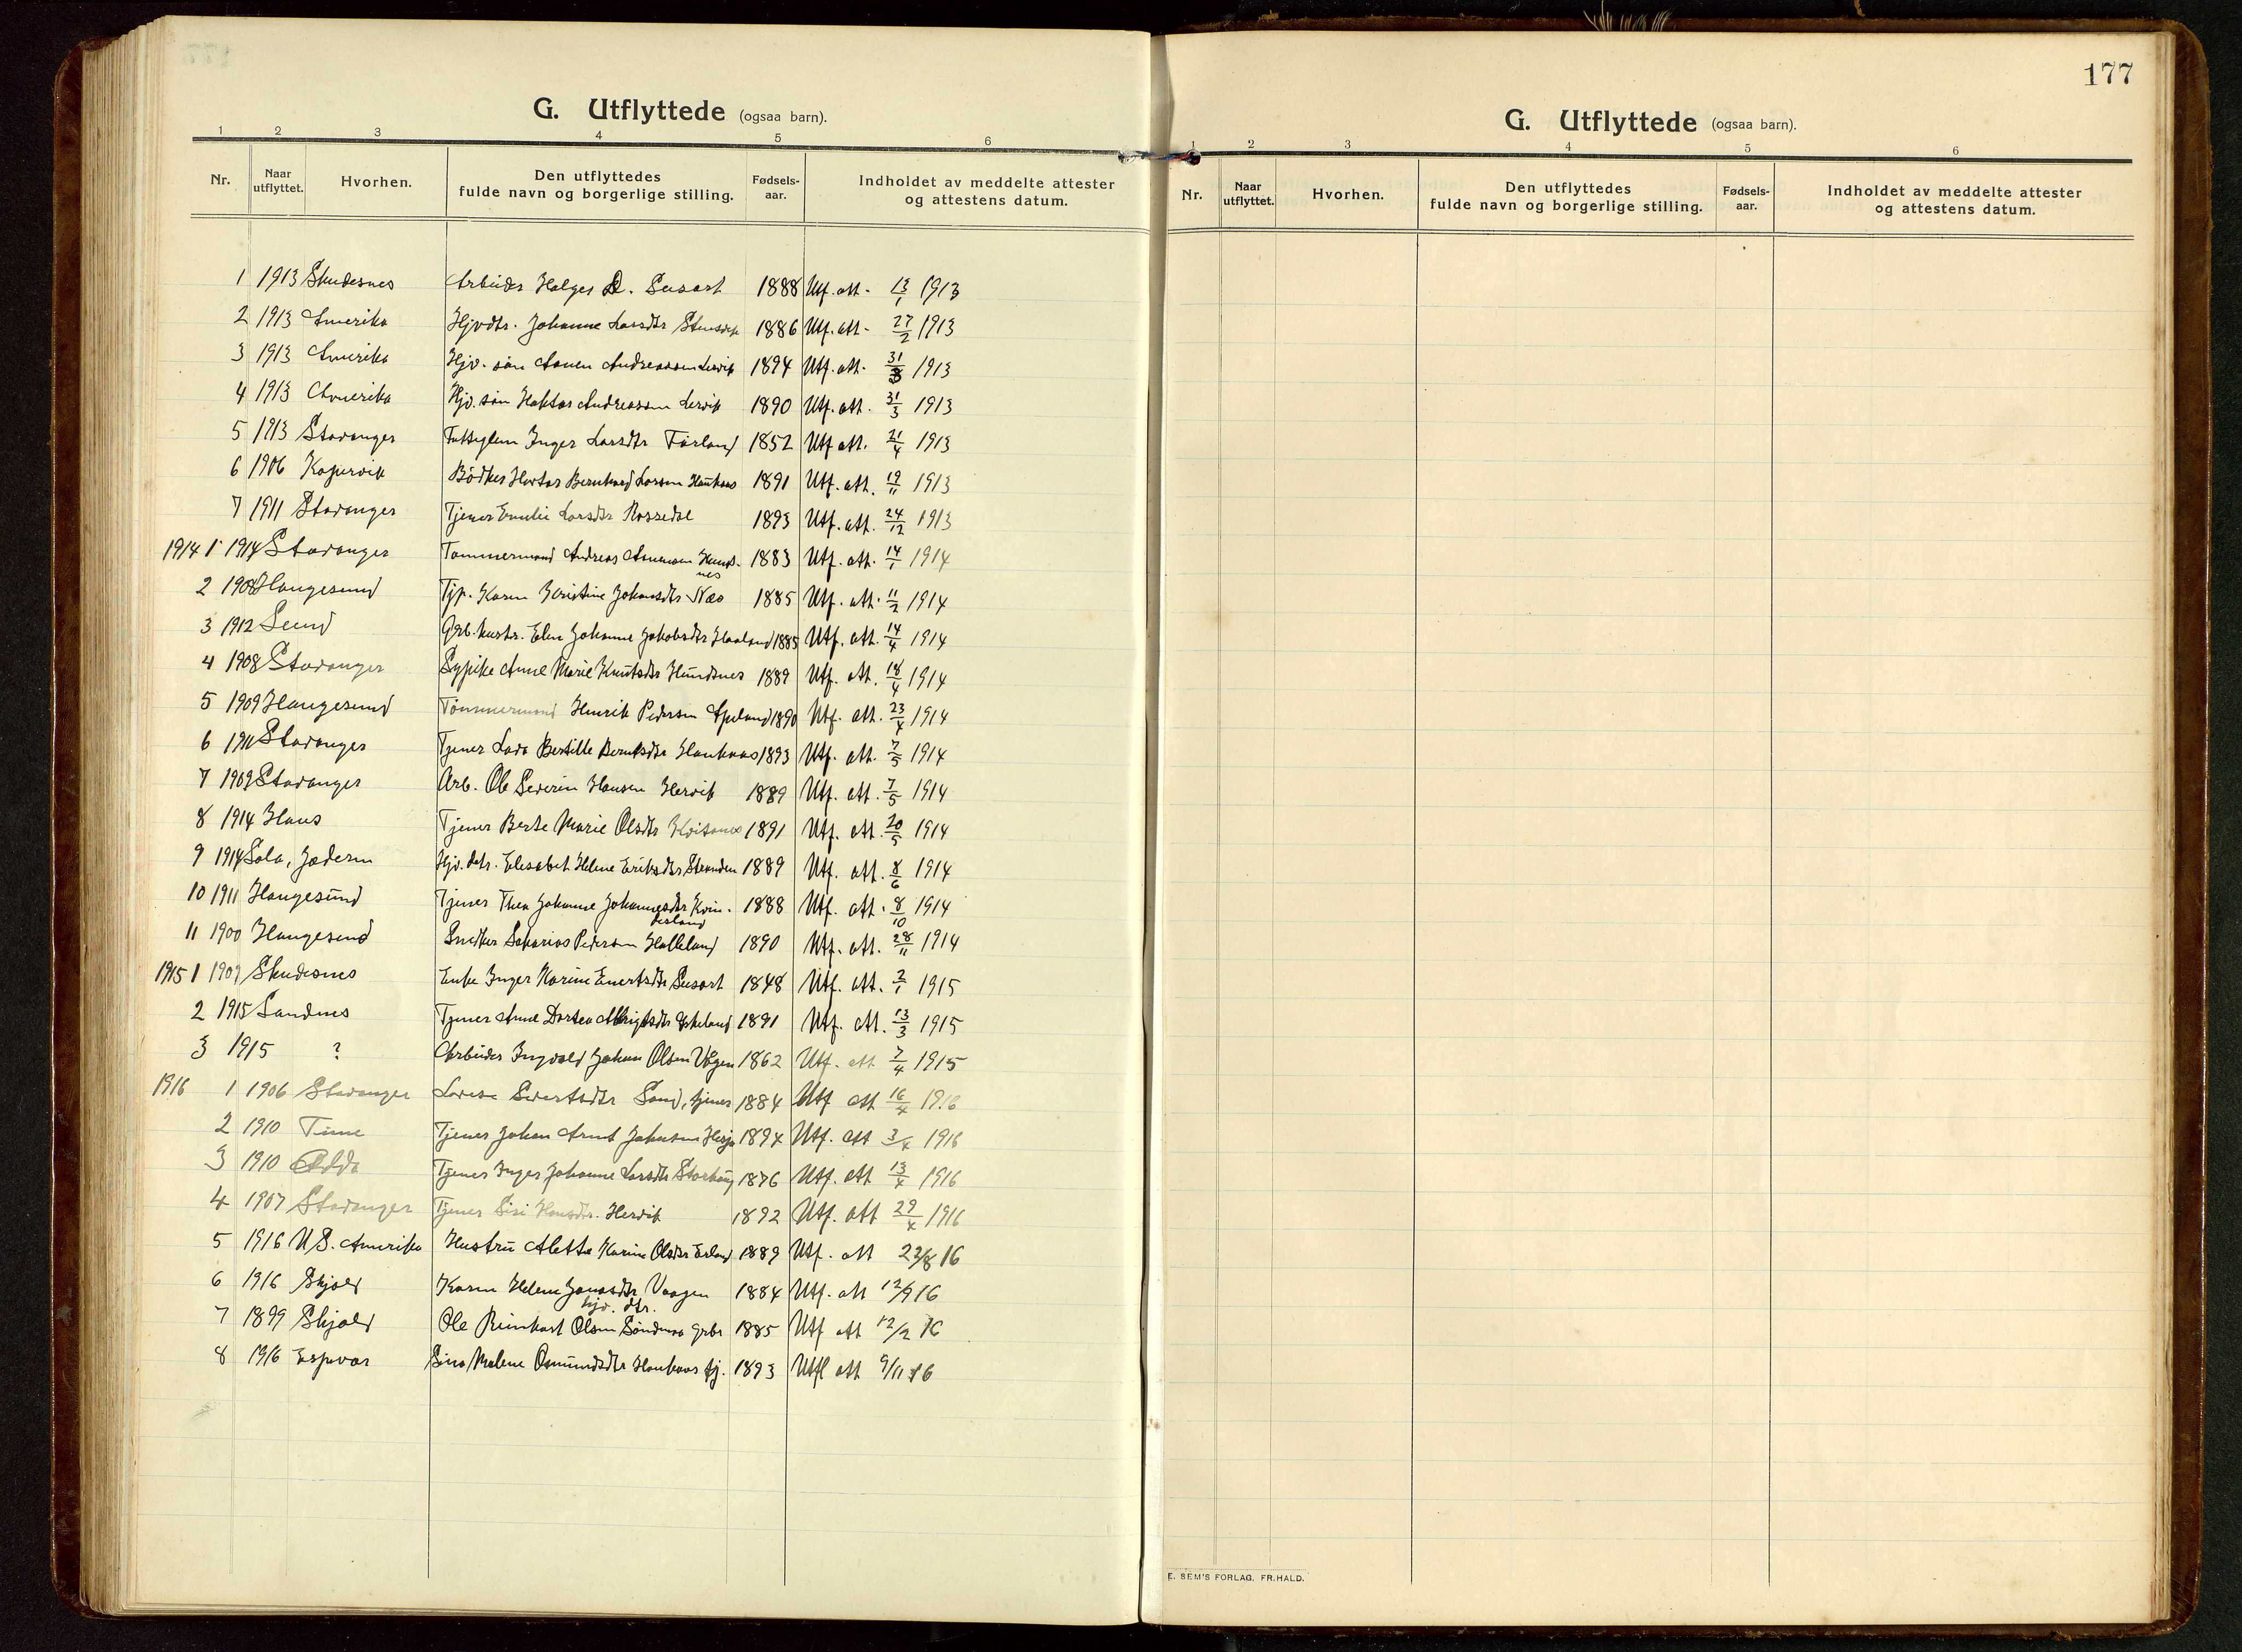 G. Utflyttede (ogsaa barn).
1 2 3 4 5 6
Nr. Naar utflyttet. Hvorhen. Den utflyttedes fulde navn og borgerlige stilling. Fødsels-aar. Indholdet av meddelte attester og attestens datum.
1 1913 Skudesnes Arbeider Holger D. Susort 1888 Utf. att. 13/1 1913
2 1913 Amerika Hjvdtr. Johanne Larsdtr 1886 Utf. att. 27/2 1913
3 1913 Amerika Hjv. søn Anen Andreassen Lervik 1894 Utf. att. 31/3 1913
4 1913 Amerika Hjv. søn Andreassen Lervik 1890 Utf. att. 31/3 1913
5 1913 Stavanger Fattiglem Inger Larsdtr Førland 1852 Utf att. 21/4 1913
6 1906 Kopervik Bödker Bernhard Larsen Haukaas 1891 Utf. att. 19/11 1913
7 1911 Stavanger Tjener Emilie Larsdtr Rossedal 1893 Utf. att. 24/12 1913
1914 1 1914 Stavanger Tømmermand Andreas Hunds-
nes 1883 Utf. att. 14/1 1914
2 1908 Haugesund Tjp. Karen Kristine Johansdtr Næs 1885 Utf. att. 11/2 1914
3 1912 Sund Grb. hustr. Elen Johanne Jakobsdtr Haaland 1885 Utf. att. 14/4 1914
4 1908 Stavanger Sypike Anne Marie Knutsdtr Hundsnes 1889 Utf. att. 18/4 1914
5 1909 Haugesund Tömmermand Henrik Pedersen Apeland 1890 Utf. att. 23/4 1914
6 1911 Stavanger Tjener Lava Bertille Berntsdtr Haukaas 1893 Utf. att. 7/5 1914
7 1909 Stavanger Arb. Ole Severin Hansen Hervik 1889 Utf. att. 7/5 1914
8 1914 Haus Tjener Berte Marie Olsdtr 1891 Utf. att. 20/5 1914
9 1914 Sola, Jæderen Hjv. datr. Elisabet Helene Eriksdtr Stranden 1889 Utf. att. 8/6 1914
10 1911 Haugesund Tjener Thea Johanne Johannesdtr Kvin-
nesland 1888 Utf. att. 8/10 1914
11 1900 Haugesund Snedker Sakarias Pedersen Halleland 1890 Utf. att. 28/11 1914
1915 1 1909 Skudesnes Enke Inger Karine Enertsdtr Susort 1848 Utf. att. 2/1 1915
2 1915 Sandnes Tjener Anne Dortea Albrigtsdtr Eskeland 1891 Utf. att. 13/3 1915
3 1915 ? Arbeider Ingvald Johan Olsen Vågen 1862 Utf. att 7/4 1915
1916 1 1906 Stavanger Lovise Sivertsdtr Sand, tjener 1884 Utf att 16/4 1916
2 1910 Time Tjener Johan Arnt Johnsen 1894 Utf. att 3/4 1916
3 1910 Odda Tjener Inger Johanne Larsdtr Storhaug 1876 Utf. att 13/4 1916
4 1907 Stavanger Tjener Siri Hansdtr. Hervik 1892 Utf. att 29/4 1916
5 1916 U.S. Amerika Hustru Aletta Karine Olsdtr Erland 1889 Utf. att 23/8 16
6 1916 Skjold Karen Helene Jonasdtr Vaagen
hjv. dtr. 1884 Utf. att 12/9 16
7 1899 Skjold Ole Reinhart Olsen Søndenaa grbr 1885 Utf att 12/2 16
8 1916 Espevær Sina Malene Osmundsdtr Haukaas tj. 1893 Utfl att 9/11 16
177
G. Utflyttede (ogsaa barn).
1 2 3 4 5 6
Nr. Naar utflyttet. Hvorhen. Den utflyttedes fulde navn og borgerlige stilling. Fødsels-aar. Indholdet av meddelte attester og attestens datum.
E. SEM'S FORLAG. FR.HALD.